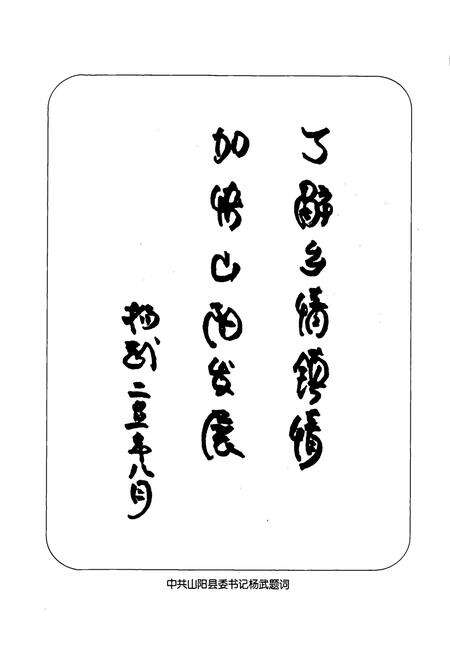 了解乡情镇情
加快山阳发展
杨武 二〇〇五年八月
中共山阳县委书记杨武题词